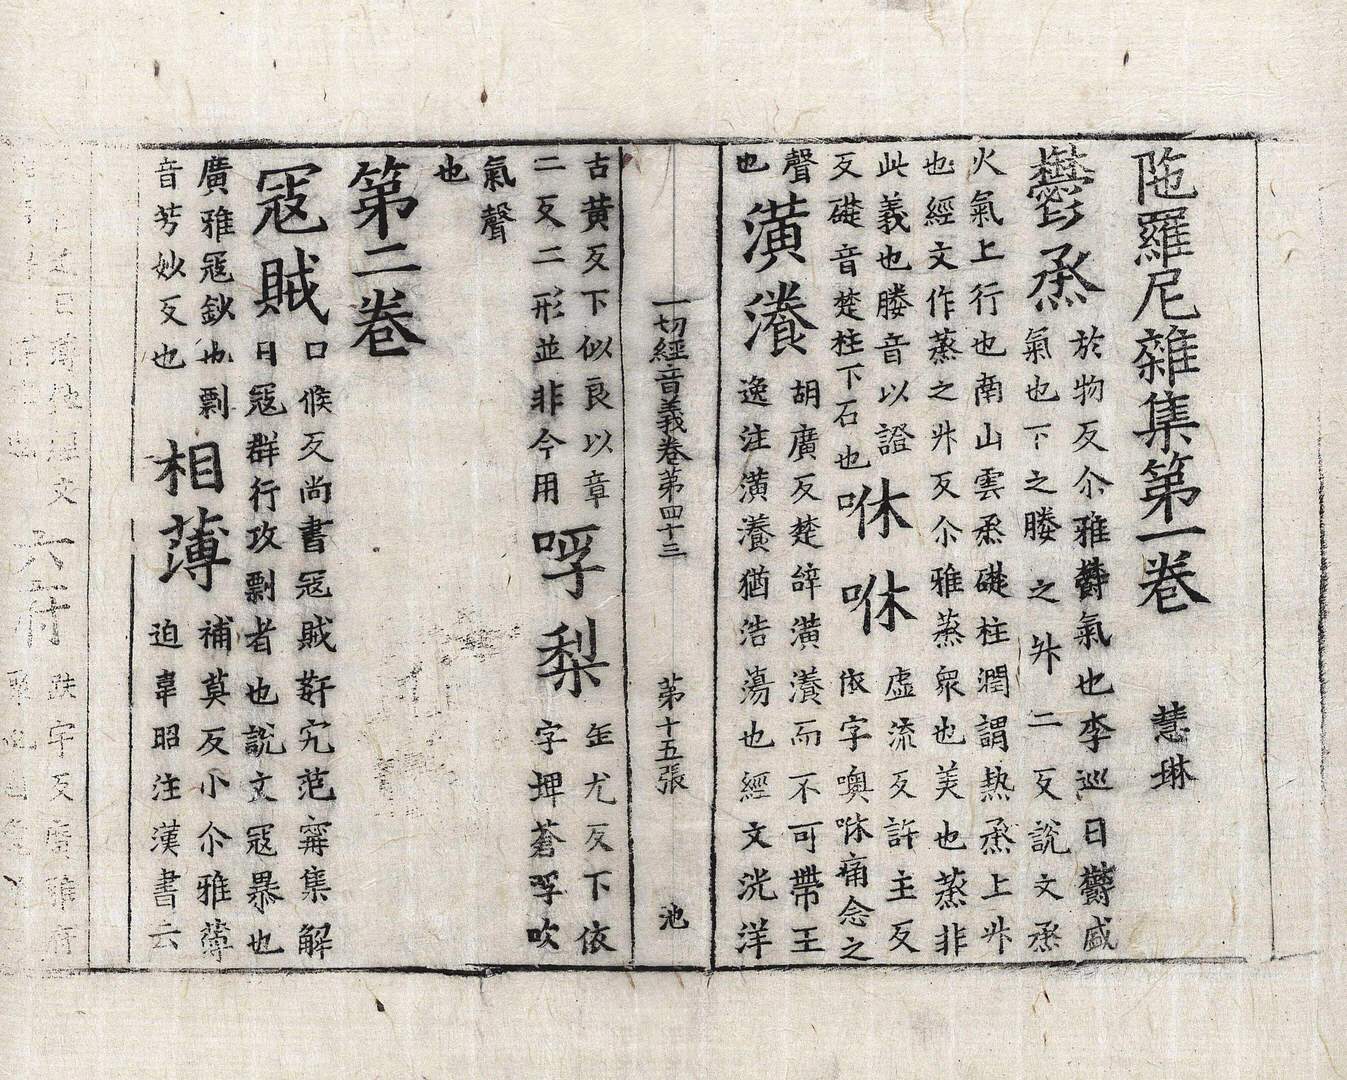 陁羅尼雜集第一卷 慧琳
鬱烝 於物反尒雅鬱氣也李巡曰鬱盛
氣也下之媵之升二反說文烝
火氣上行也南山雲烝礎柱潤謂熱烝上升
也經文作蒸之升反尒雅蒸衆也美也蒸非
此義也媵音以證
反礎音楚柱下石也
咻咻 虛流反許主反
依字噢咻痛念之
聲
也
潢瀁 胡廣反楚辝潢瀁而不可帶王
逸注潢瀁猶浩蕩也經文洸洋
一切經音義卷第四十三 第十五張 池
古黃反下似良以章
二反二形並非今用
哹梨 缶尤反下依
字埤蒼哹吹
氣聲
也
第二卷
寇賊 口候反尚書寇賊姧宄范甯集解
曰寇群行攻剽者也說文寇暴也
廣雅寇鈔也剽
音芳妙反也
相薄 補莫反小尒雅薄
迫韋昭注漢書云
六府 趺宇反廣雅府